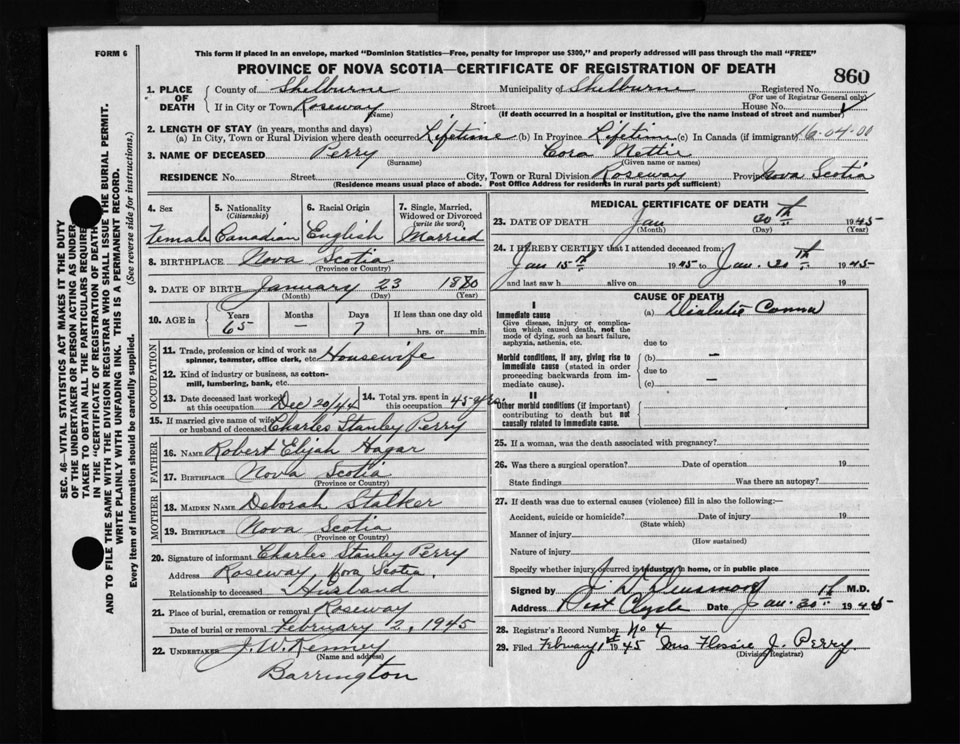 FORM 6
This form if placed in an envelope, marked "Dominion Statistics—Free, penalty for improper use $300," and properly addressed will pass through the mail "FREE"
PROVINCE OF NOVA SCOTIA—CERTIFICATE OF REGISTRATION OF DEATH
860
1. PLACE OF DEATH
County of Shelburne Municipality of Shelburne Registered No.
(For use of Registrar General only)
If in City or Town Roseway Street House No.
(Name) (If death occurred in a hospital or institution, give the name instead of street and number)
2. LENGTH OF STAY (in years, months and days)
(a) In City, Town or Rural Division where death occurred Lifetime (b) In Province Lifetime (c) In Canada (if immigrant) 16-04-00
3. NAME OF DECEASED Perry Cora Nettie
(Surname) (Given name or names)
RESIDENCE No. Street City, Town or Rural Division Roseway Province Nova Scotia
(Residence means usual place of abode. Post Office Address for residents in rural parts not sufficient)
4. Sex
Female
5. Nationality (Citizenship)
Canadian
6. Racial Origin
English
7. Single, Married, Widowed or Divorced (write the word)
Married
8. BIRTHPLACE Nova Scotia
(Province or Country)
9. DATE OF BIRTH January 23 1880
(Month) (Day) (Year)
10. AGE in
Years Months Days If less than one day old
65 — 7 hrs. or min.
OCCUPATION
11. Trade, profession or kind of work as spinner, teamster, office clerk, etc. Housewife
12. Kind of industry or business, as cotton-mill, lumbering, bank, etc.
13. Date deceased last worked at this occupation Dec 20/44
14. Total yrs. spent in this occupation 45 yrs.
15. If married give name of wife or husband of deceased Charles Stanley Perry
FATHER
16. NAME Robert Elijah Hagar
17. BIRTHPLACE Nova Scotia
(Province or Country)
MOTHER
18. MAIDEN NAME Deborah Stalker
19. BIRTHPLACE Nova Scotia
(Province or Country)
20. Signature of informant Charles Stanley Perry
Address Roseway, Nova Scotia.
Relationship to deceased Husband
21. Place of burial, cremation or removal Roseway
Date of burial or removal February 2, 1945
22. UNDERTAKER J. W. Kenney
(Name and address)
Barrington
MEDICAL CERTIFICATE OF DEATH
23. DATE OF DEATH Jan 30th 1945
(Month) (Day) (Year)
24. I HEREBY CERTIFY that I attended deceased from:
Jan 15th 1945 to Jan. 30th 1945
and last saw h alive on 19
CAUSE OF DEATH
I
Immediate cause
Give disease, injury or complication which caused death, not the mode of dying, such as heart failure, asphyxia, asthenia, etc.
(a) Diabetic Comma
due to
Morbid conditions, if any, giving rise to immediate cause (stated in order proceeding backwards from immediate cause).
(b) —
due to
(c) —
II
Other morbid conditions (if important) contributing to death but not causally related to immediate cause.
25. If a woman, was the death associated with pregnancy?
26. Was there a surgical operation? Date of operation 19
State findings Was there an autopsy?
27. If death was due to external causes (violence) fill in also the following:—
Accident, suicide or homicide? Date of injury 19
(State which)
Manner of injury
(How sustained)
Nature of injury
Specify whether injury occurred in industry, in home, or in public place
Signed by J. D. M.D.
Address Port Clyde Date Jan. 30th 1945
28. Registrar's Record Number No 4
29. Filed February 1st 1945 Mrs Flossie J. Perry
(Division Registrar)
SEC. 46—VITAL STATISTICS ACT MAKES IT THE DUTY
OF THE UNDERTAKER OR PERSON ACTING AS UNDERTAKER
TO OBTAIN ALL THE PARTICULARS REQUIRED
IN THE "CERTIFICATE OF REGISTRATION OF DEATH"
AND TO FILE THE SAME WITH THE DIVISION REGISTRAR WHO SHALL ISSUE THE BURIAL PERMIT.
WRITE PLAINLY WITH UNFADING INK. THIS IS A PERMANENT RECORD.
Every item of information should be carefully supplied. (See reverse side for instructions.)